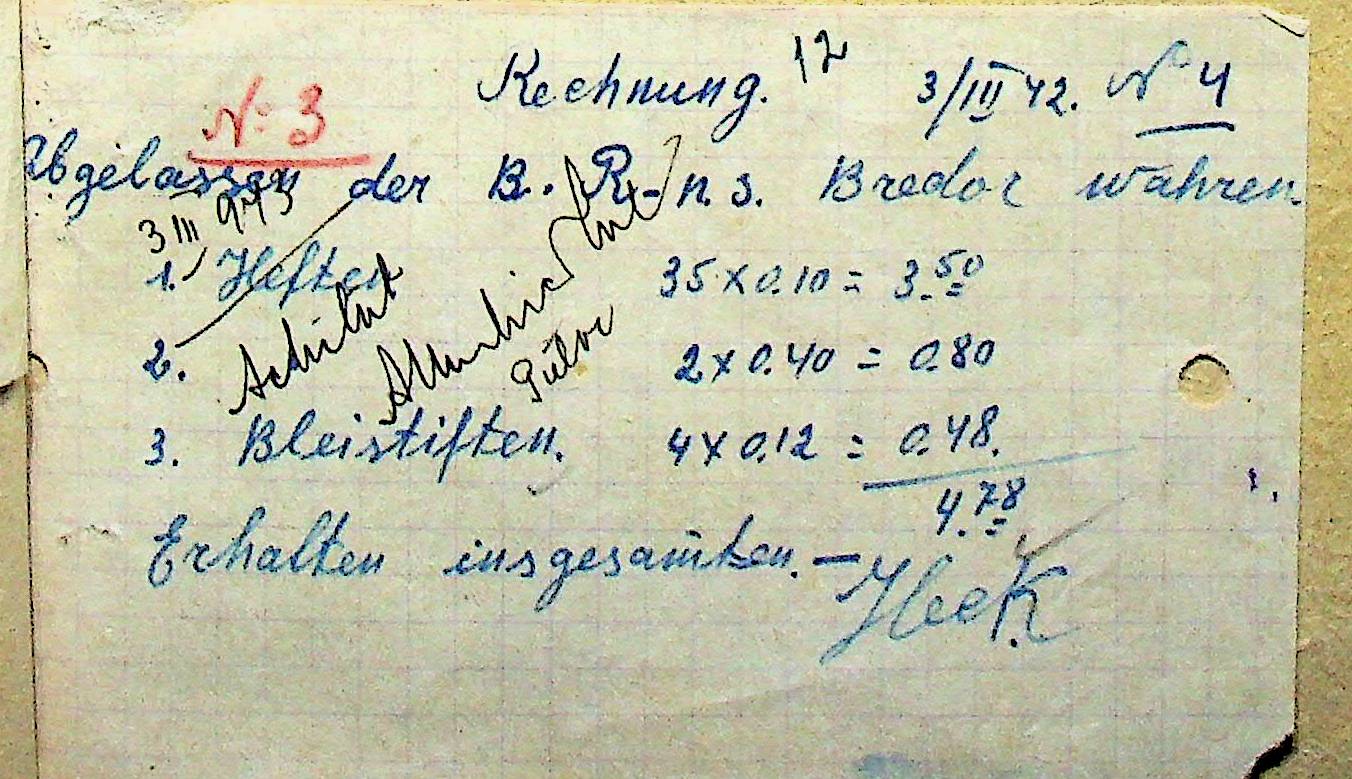 Rechnung. 12 3/III 42. № 4
№ 3
Abgelassen der B. R-n.s. Bredor währen.
3 III 943
1. Heften 35 x 0.10 = 3.50
2. 2 x 0.40 = 0.80
3. Bleistiften. 4 x 0.12 = 0.48.
4.78
Erhalten insgesamten. —